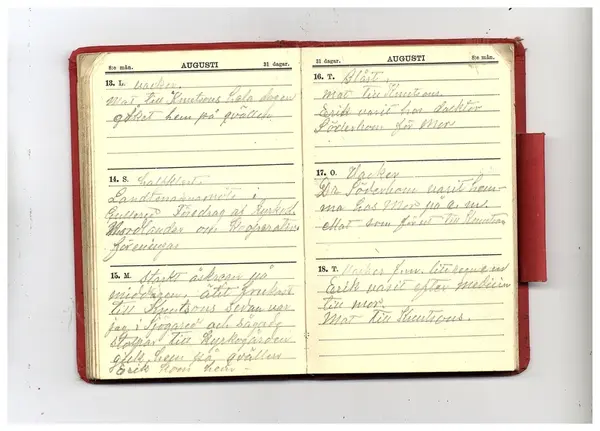 8:e mån. AUGUSTI 31 dagar.
13. L. vacker.
Mat till Knutsons hela dagen
gått hem på qvällen
14. S. halfklart.
Landtmannamöte i
Föredrag af Kyrkoh.
Nordlander om Kooperativ
föreningar
15. M. Starkt åskregn på
middagen,
till Knutsons sedan var
jag i Sjögared och
stolpar till Kyrkogården
gick hem på qvällen
Erik kom hem
31 dagar. AUGUSTI 8:e mån.
16. T. Blåst.
Mat till Knutsons.
Erik varit hos doktor
Söderbom för Mor
17. O. Vacker
Dr Söderbom varit hem-
ma hos Mor på e. m.
Mat som förut till Knutsons
18. T. Vacker f.m. lite regn e.m
Erik varit efter medicin
till mor.
Mat till Knutsons.
M